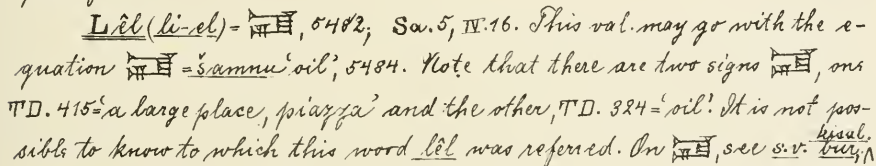 Lêl (li-el) = , 5482; Sa. 5, IV. 16. This val. may go with the e-
quation = šamnu 'oil', 5484. Note that there are two signs , one
TD. 415 = 'a large place, piazza' and the other, TD. 324 = 'oil'. It is not pos-
sible to know to which this word lêl was referred. On , see s.v. bur, kisal.